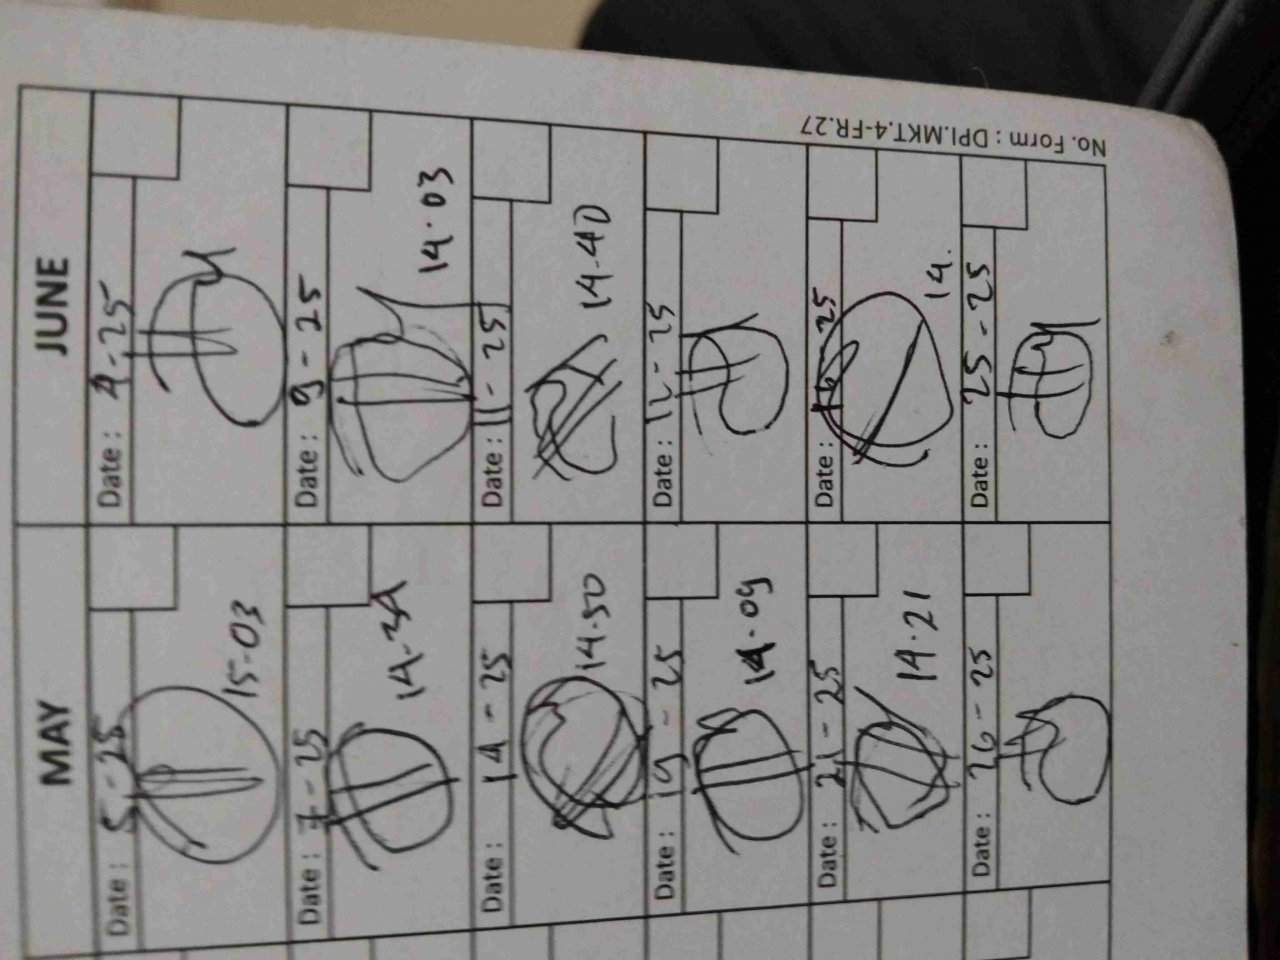 MAY
JUNE
Date : 5-25
15-03
Date : 4-25
Date : 7-25
Date : 9-25
14.03
Date : 14-25
14.50
Date : 11-25
14-40
Date : 19-25
14.09
Date : 12-25
Date : 21-25
14.21
Date : 25
14.
Date : 26-25
Date : 25-25
No. Form : DPI.MKT.4-FR.27